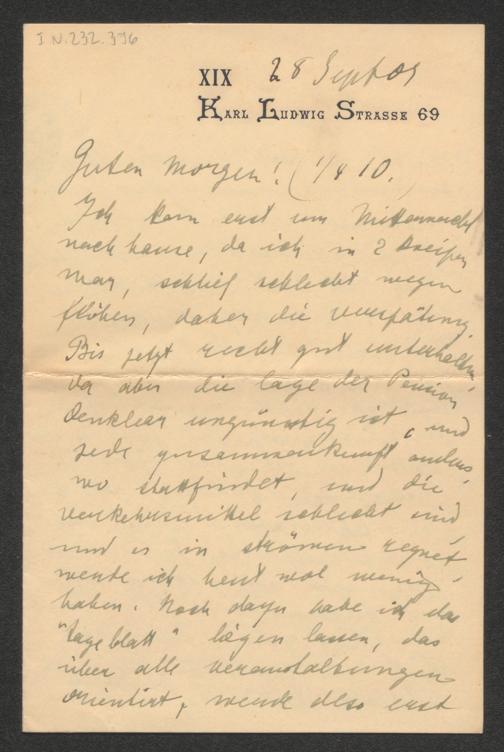 I.N. 232.396
28 Sept 09
XIX
Karl Ludwig Strasse 69
Guten Morgen! (1/4 10.)
Ich kam erst um Mitternacht
nach hause, da ich in 2 Kneipen
war, schlief schlecht wegen
flöhen, daher die verspätung.
Bis jetzt recht gut unterhalten,
da aber die lage der Pension
denkbar ungünstig ist, und
jede zusammenkunft anders-
wo stattfindet, und die
verkehrsmittel schlecht sind,
und es in strömen regnet,
werde ich heut wol wenig
haben. Noch dazu habe ich das
"tageblatt" liegen lassen, das
über alle veranstaltungen
orientirt, werde also erst